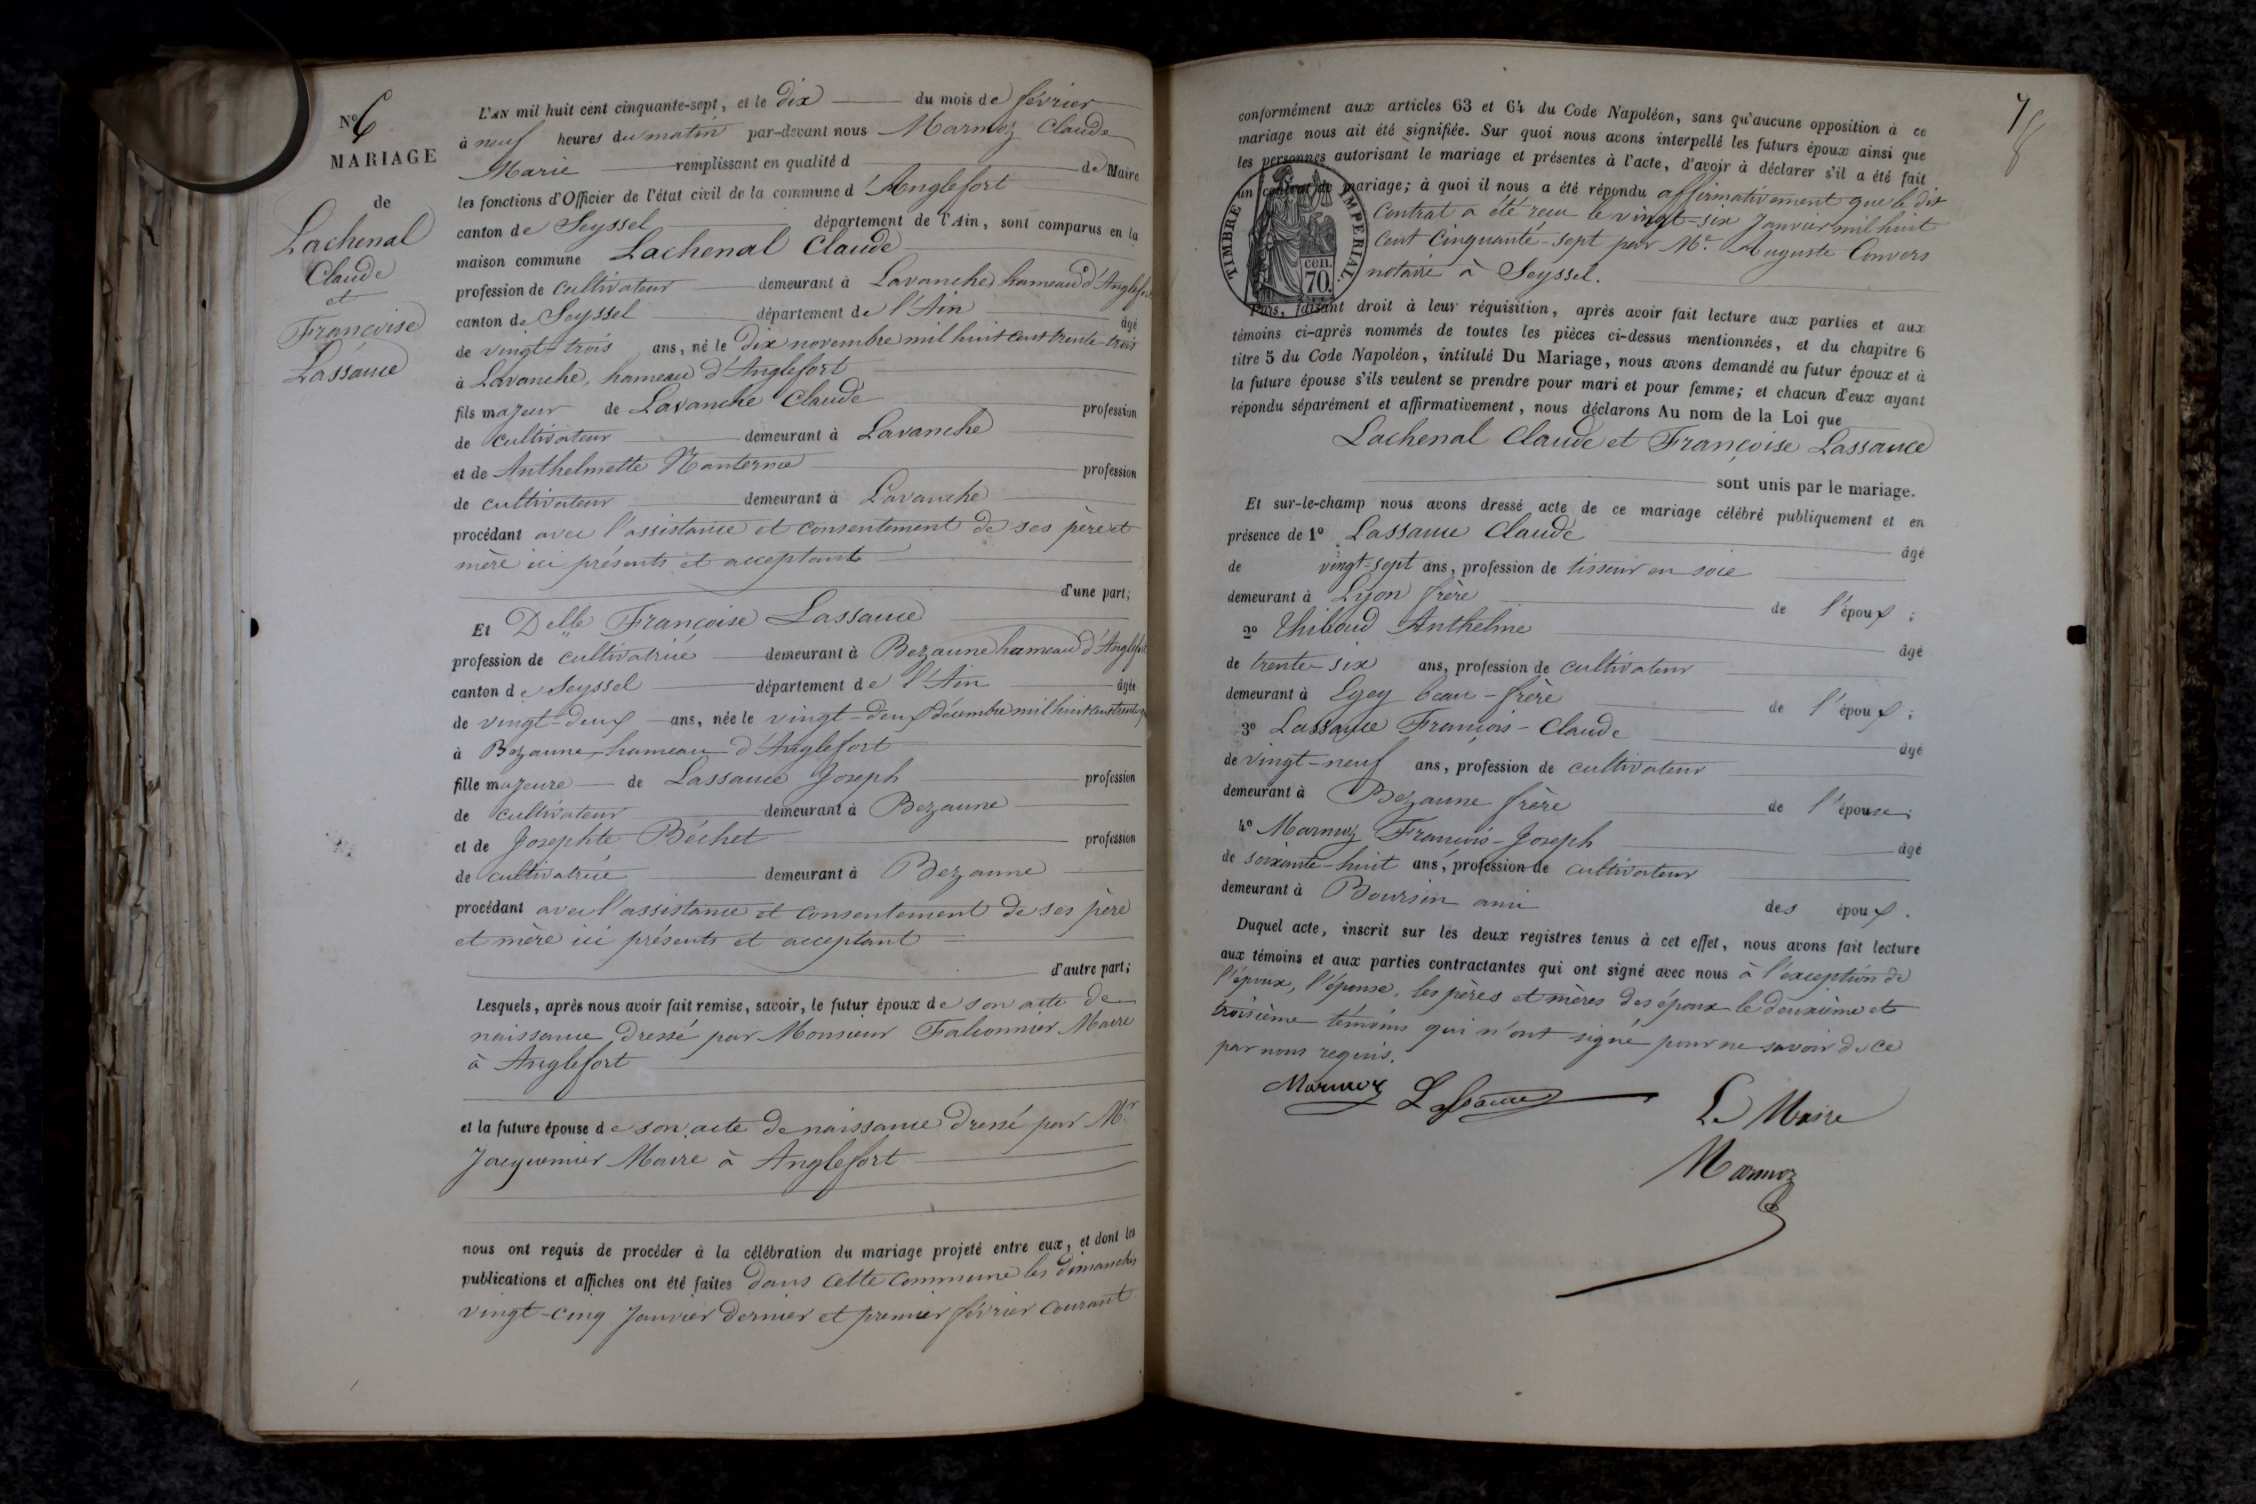 N° 6
MARIAGE
de
Lachenal
Claude
et
Françoise
Lassauce
L'AN mil huit cent cinquante-sept, et le dix du mois de février
à neuf heures du matin par-devant nous Marmoz Claude
Marie remplissant en qualité d de Maire
les fonctions d'Officier de l'état civil de la commune d'Anglefort
canton de Seyssel département de l'Ain, sont comparus en la
maison commune Lachenal Claude
profession de cultivateur demeurant à Lavanche hameau d'Anglefort
canton de Seyssel département de l'Ain âgé
de vingt-trois ans, né le dix novembre mil huit cent trente-trois
à Lavanche, hameau d'Anglefort
fils majeur de Lavanche Claude profession
de cultivateur demeurant à Lavanche
et de Anthelmette Nanterme profession
de cultivateur demeurant à Lavanche
procédant avec l'assistance et consentement de ses père et
mère ici présents et acceptants
d'une part;
Et Delle Françoise Lassauce
profession de cultivatrice demeurant à Bezanne hameau d'Anglefort
canton de Seyssel département de l'Ain âgée
de vingt-deux ans, née le vingt-deux décembre mil huit cent trente
à Bezanne, hameau d'Anglefort
fille majeure de Lassauce Joseph profession
de cultivateur demeurant à Bezanne
et de Josephte Béchet profession
de cultivatrice demeurant à Bezanne
procédant avec l'assistance et consentement de ses père
et mère ici présents et acceptant
d'autre part;
Lesquels, après nous avoir fait remise, savoir, le futur époux de son acte de
naissance dressé par Monsieur Falconnier Maire
à Anglefort
et la future épouse de son acte de naissance dressé par Mr
Jacquemier Maire à Anglefort
nous ont requis de procéder à la célébration du mariage projeté entre eux, et dont les
publications et affiches ont été faites dans cette commune les dimanches
vingt-cinq Janvier dernier et premier février courant
7
8
conformément aux articles 63 et 64 du Code Napoléon, sans qu'aucune opposition à ce
mariage nous ait été signifiée. Sur quoi nous avons interpellé les futurs époux ainsi que
les personnes autorisant le mariage et présentes à l'acte, d'avoir à déclarer s'il a été fait
un contrat de mariage; à quoi il nous a été répondu affirmativement que le dit
contrat a été reçu le vingt-six Janvier mil huit
cent cinquante-sept par Me Auguste Convers
notaire à Seyssel.
TIMBRE IMPERIAL.
cen.
70.
Puis, faisant droit à leur réquisition, après avoir fait lecture aux parties et aux
témoins ci-après nommés de toutes les pièces ci-dessus mentionnées, et du chapitre 6
titre 5 du Code Napoléon, intitulé Du Mariage, nous avons demandé au futur époux et à
la future épouse s'ils veulent se prendre pour mari et pour femme; et chacun d'eux ayant
répondu séparément et affirmativement, nous déclarons Au nom de la Loi que
Lachenal Claude et Françoise Lassauce
sont unis par le mariage.
Et sur-le-champ nous avons dressé acte de ce mariage célébré publiquement et en
présence de 1° Lassauce Claude âgé
de vingt-sept ans, profession de tisseur en soie
demeurant à Lyon frère de l'époux;
2° Thiboud Anthelme âgé
de trente-six ans, profession de cultivateur
demeurant à beau-frère de l'époux;
3° Lassauce François-Claude âgé
de vingt-neuf ans, profession de cultivateur
demeurant à Bezanne frère de l'épouse;
4° Marmoz François-Joseph âgé
de soixante-huit ans, profession de cultivateur
demeurant à Boursin ami des époux.
Duquel acte, inscrit sur les deux registres tenus à cet effet, nous avons fait lecture
aux témoins et aux parties contractantes qui ont signé avec nous à l'exception de
l'époux, l'épouse, les pères et mères des époux le deuxième et
troisième témoins qui n'ont signé pour ne savoir de ce
par nous requis.
Marmoz Lassauce
Le Maire
Marmoz